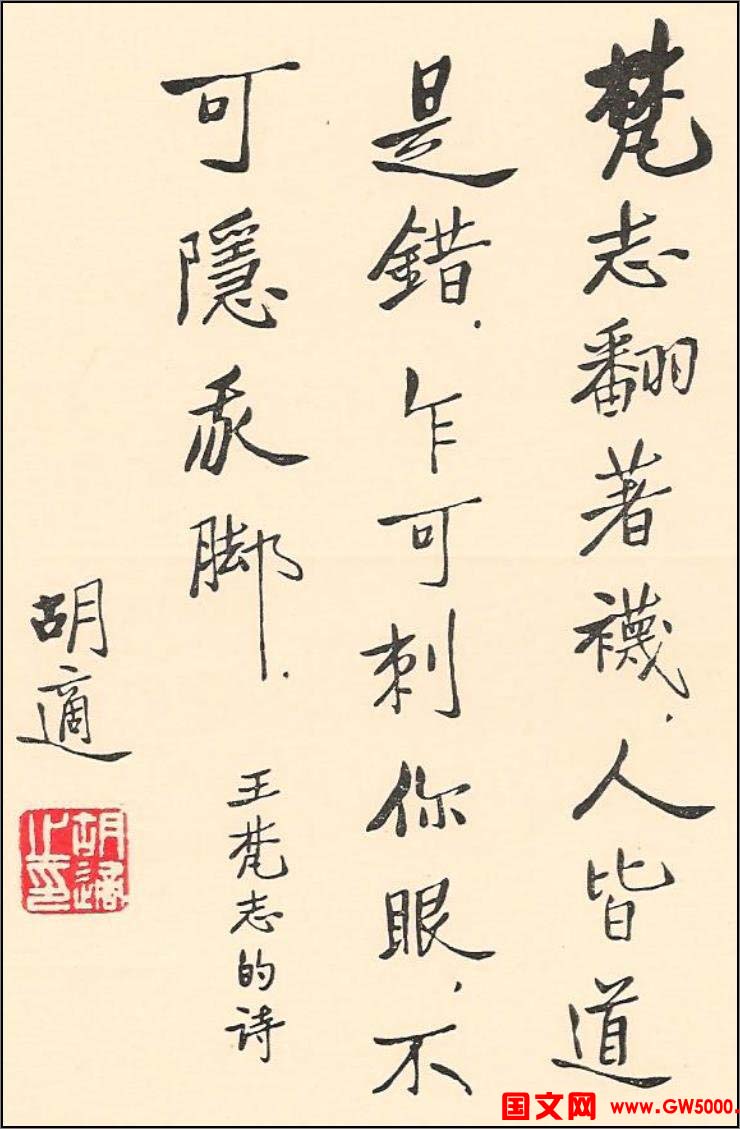 梵志翻著襪，人皆道
是錯．乍可刺你眼，不
可隱我脚．
王梵志的诗
胡適
胡適之印
国文网 www.GW5000.